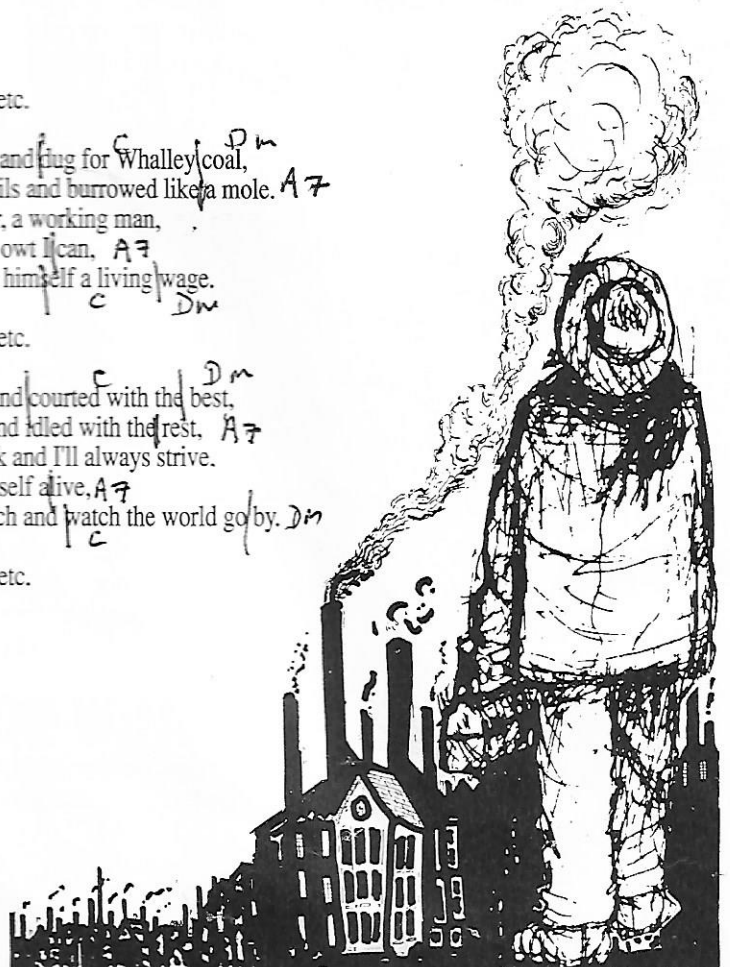 etc.
C Dm
and dug for Whalley coal,
ils and burrowed like a mole. A7
, a working man,
owt I can, A7
himself a living wage.
C Dm
etc.
C Dm
nd courted with the best,
nd idled with the rest, A7
k and I'll always strive.
self alive, A7
ch and watch the world go by. Dm
C
etc.